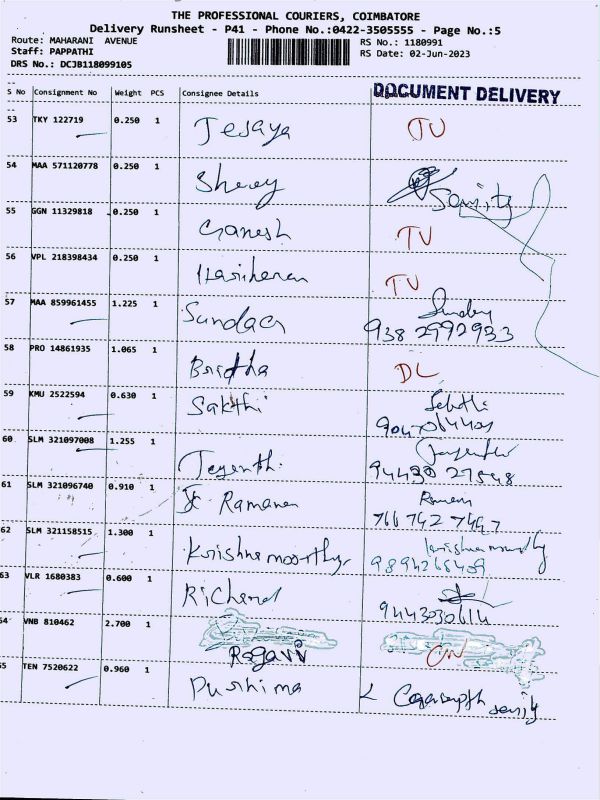 THE PROFESSIONAL COURIERS, COIMBATORE
Delivery Runsheet - P41 - Phone No.:0422-3505555 - Page No.:5
Route: MAHARANI AVENUE RS No.: 1180991
Staff: PAPPATHI RS Date: 02-Jun-2023
DRS No.: DCJB118099105
S No Consignment No Weight PCS Consignee Details DOCUMENT DELIVERY
53 TKY 122719 0.250 1 Jesaya TV
54 MAA 571120778 0.250 1
55 GGN 11329818 0.250 1 Ganesh TV
56 VPL 218398434 0.250 1 Hariharan TV
57 MAA 859961455 1.225 1 Sundar 938 2992933
58 PRO 14861935 1.065 1 DL
59 KMU 2522594 0.630 1 Sakthi
60 SLM 321097008 1.255 1 Jeyanthi 94430 27548
61 SLM 321096740 0.910 1 Ramanan
62 SLM 321158515 1.300 1 Krishnamoorthy
63 VLR 1680383 0.600 1 Richard 9443030614
64 VNB 810462 2.700 1 CN
65 TEN 7520622 0.960 1